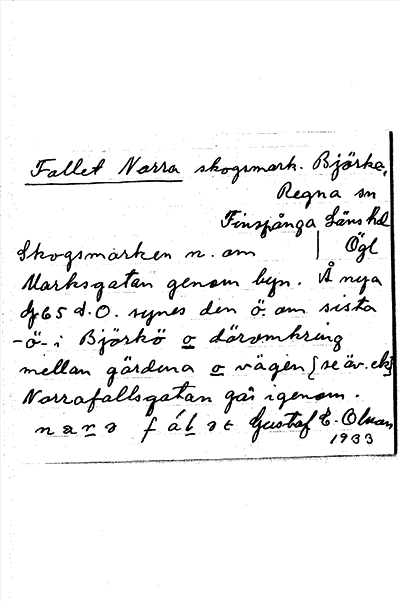 Fallet Norra skogsmark. Björke,
Regna sn
Finspånga Läns hd
Skogsmarken n. om | Ögl
Marksgatan genom byn. Å nya
65 d. O. synes den ö. om sista
-ö- i Björkö o däromkring
mellan gärdena o vägen [se äv. ek]
Norrafallsgatan går igenom.
Gustaf E. Olson
1933